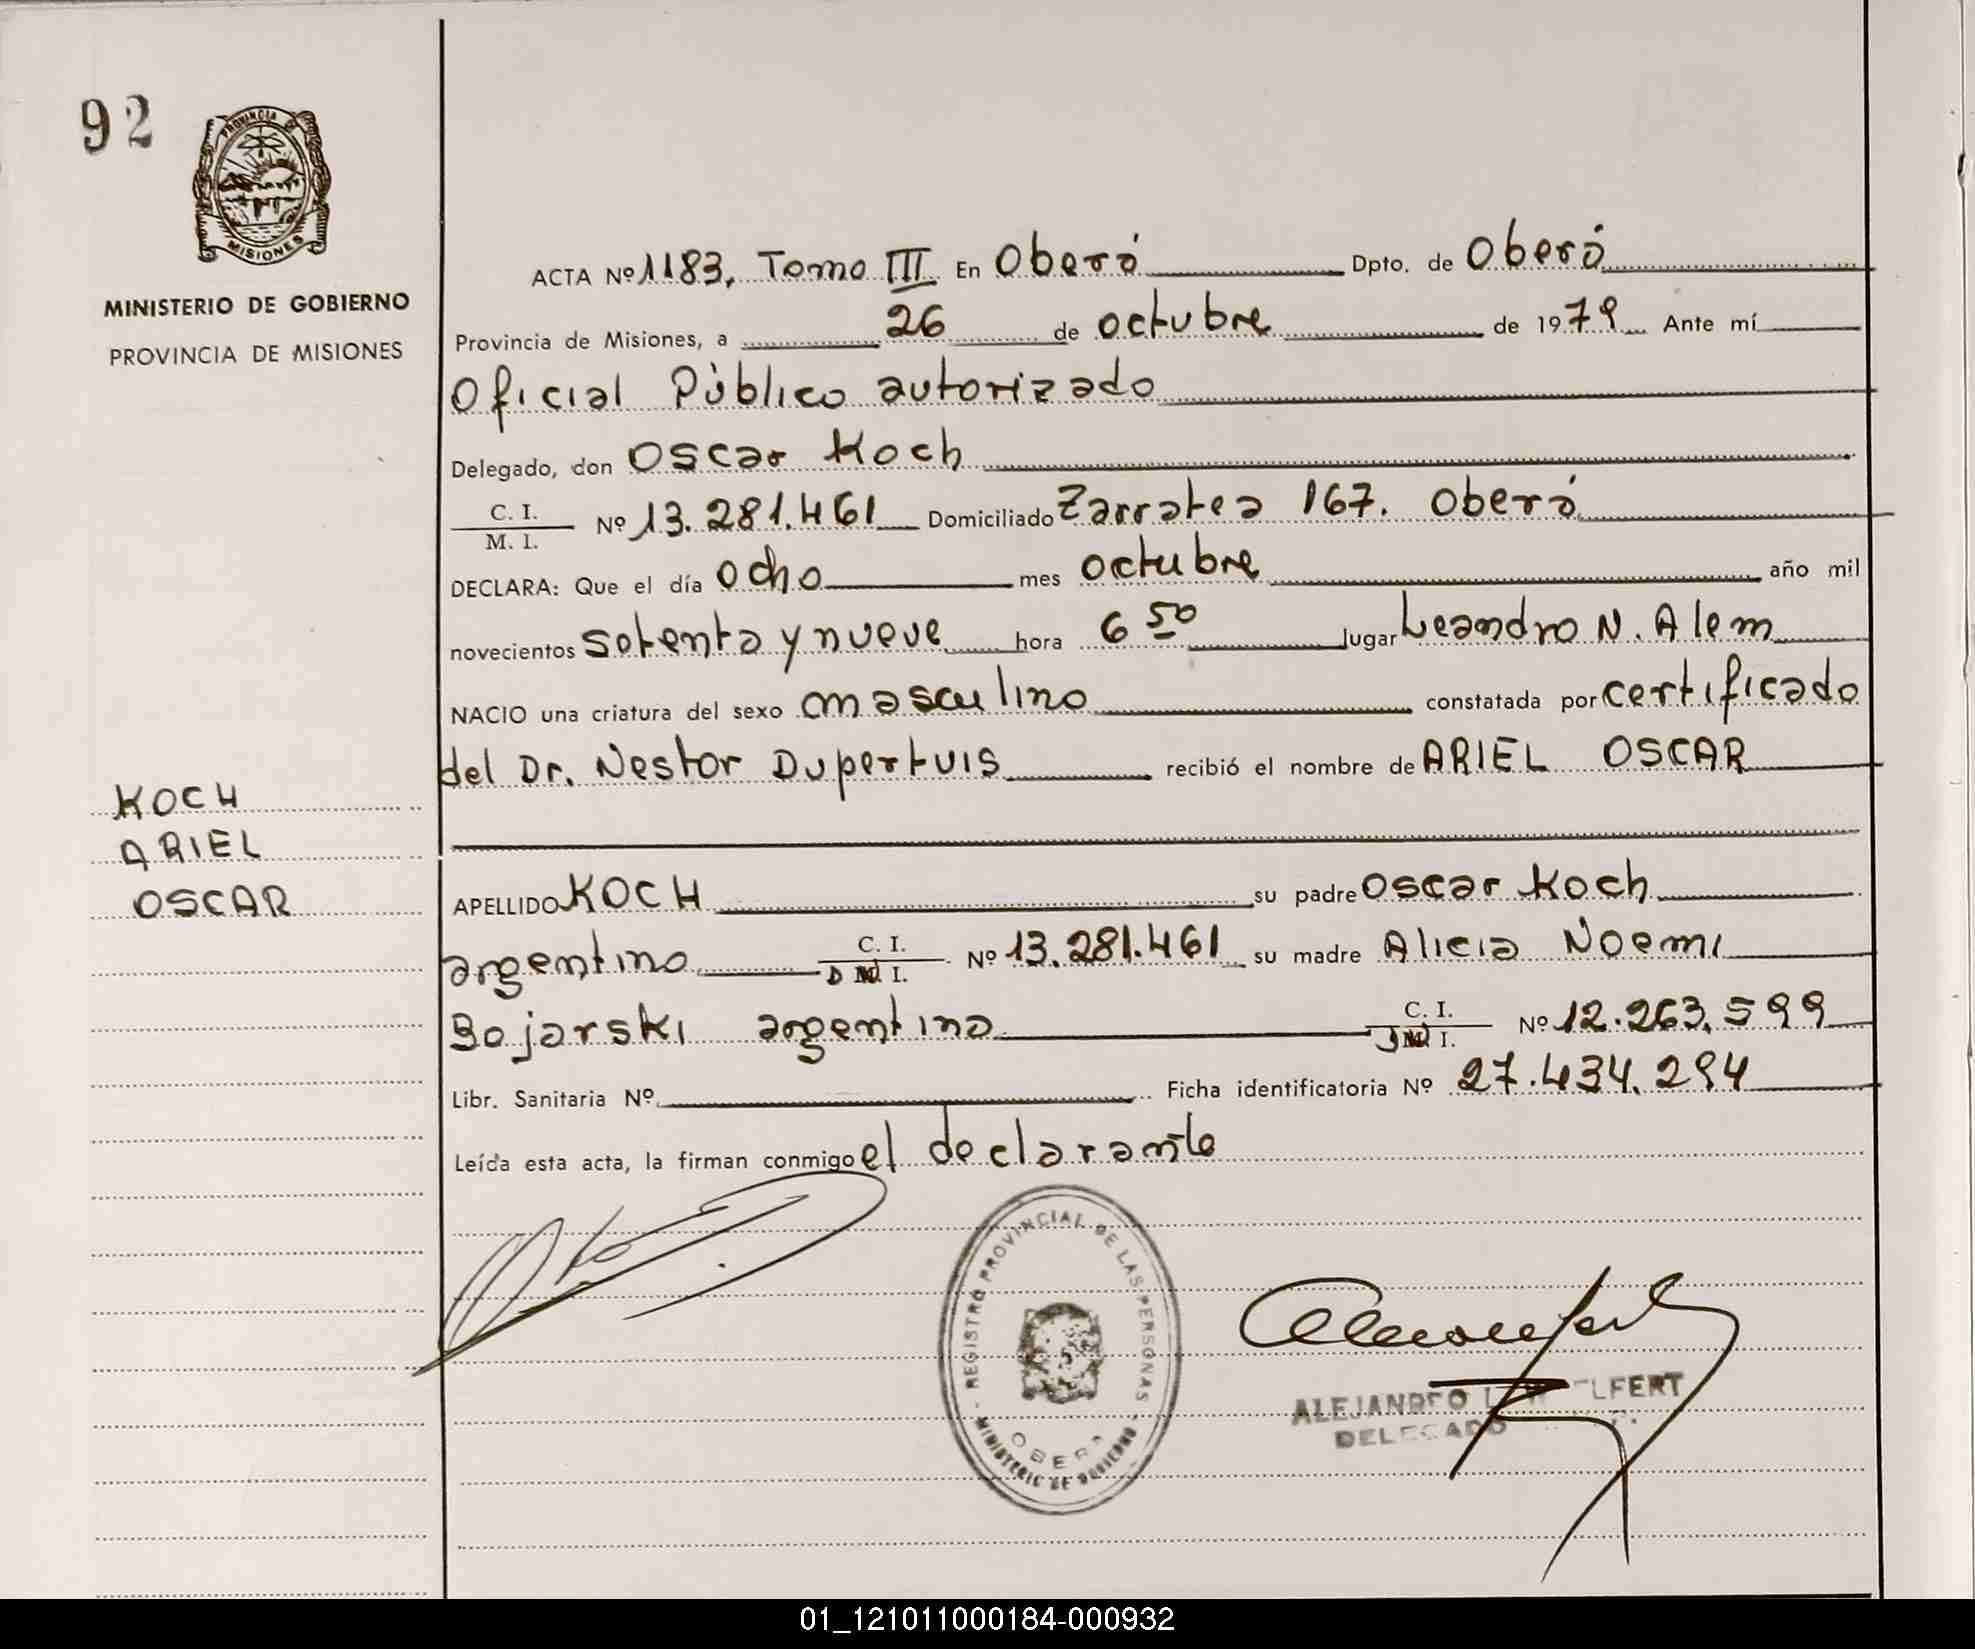 92
PROVINCIA DE
MISIONES
MINISTERIO DE GOBIERNO
PROVINCIA DE MISIONES
ACTA Nº 1183, Tomo III En Oberá Dpto. de Oberá
Provincia de Misiones, a 26 de octubre de 1979 Ante mí
Oficial Público autorizado
Delegado, don Oscar Koch
C. I.
M. I. Nº 13.281.461 Domiciliado Zarratea 167. Oberá
DECLARA: Que el día ocho mes octubre año mil
novecientos setenta y nueve hora 6 50 lugar Leandro N. Alem
NACIO una criatura del sexo masculino constatada por certificado
del Dr. Nestor Dupertuis recibió el nombre de ARIEL OSCAR
KOCH
ARIEL
OSCAR
APELLIDO KOCH su padre Oscar Koch
argentino C. I. D N I. Nº 13.281.461 su madre Alicia Noemi
Bojarski argentina C. I. D N I. Nº 12.263.599
Libr. Sanitaria Nº Ficha identificatoria Nº 27.434.294
Leída esta acta, la firman conmigo el declarante
REGISTRO PROVINCIAL DE LAS PERSONAS
OBERA
MINISTERIO DE GOBIERNO
ALEJANDRO
DELEGADO
01_121011000184-000932